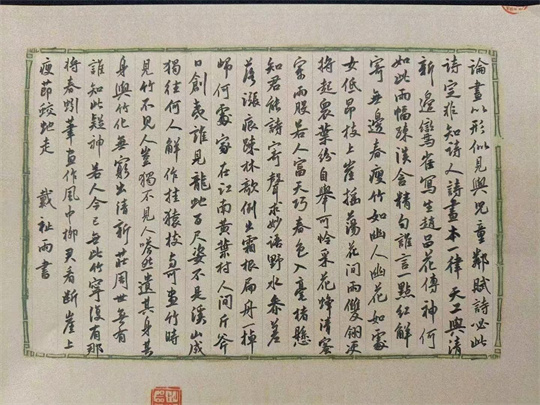 論畫以形似見與兒童鄰賦詩必此
詩定非知詩人詩畫本一律天工與清
新邊鸞雀寫生趙昌花傳神何
如此兩幅疎淡含精勻誰言一點紅解
寄無邊春瘦竹如幽人幽花如處
女低昂枝上雀搖蕩花間雨雙翎決
將起衆葉紛自舉可憐采花蜂清蜜
寄兩股若人富天巧春色入毫楮懸
知君能詩寄聲求妙語野水參差
落漲痕疎林欹倒出霜根扁舟一棹
歸何處家在江南黃葉村人間斤斧
日創夷誰見龍蛇百尺姿不是溪山成
獨往何人解作挂猿枝與可畫竹時
見竹不見人豈獨不見人嗒然遺其身其
身與竹化無窮出清新莊周世無有
誰知此疑神若人今已無此竹寧復有那
將春蚓筆畫作風中柳君看斷崖上
瘦節蛟蛇走 戴祉雨書